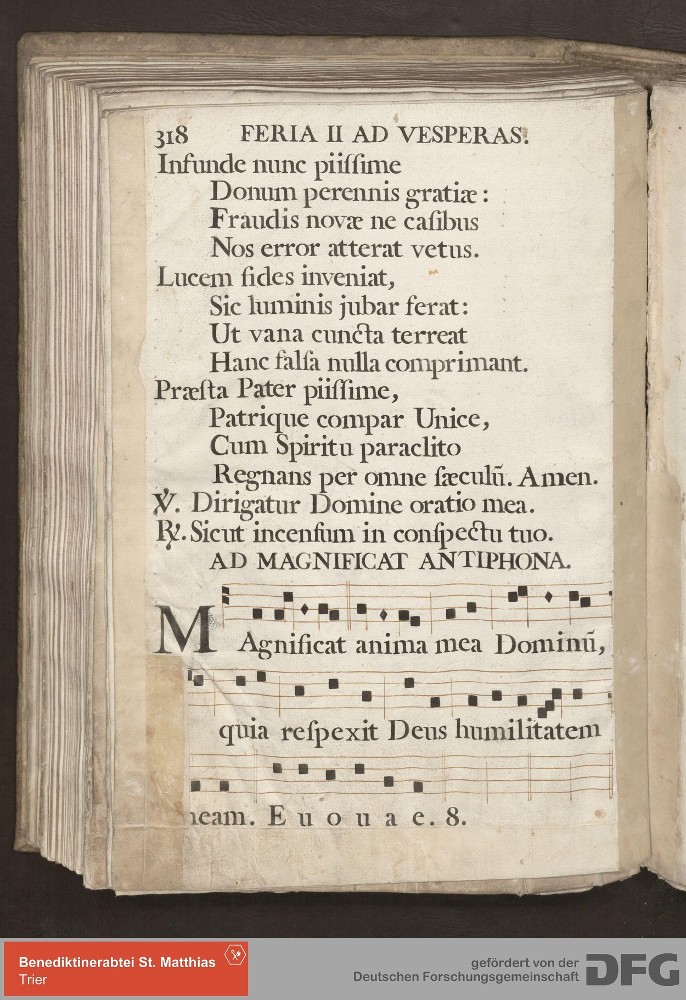 318 FERIA II AD VESPERAS.
Infunde nunc piiſſime
Donum perennis gratiæ:
Fraudis novæ ne caſibus
Nos error atterat vetus.
Lucem fides inveniat,
Sic luminis jubar ferat:
Ut vana cuncta terreat
Hanc falſa nulla comprimant.
Præſta Pater piiſſime,
Patrique compar Unice,
Cum Spiritu paraclito
Regnans per omne ſæculū. Amen.
℣. Dirigatur Domine oratio mea.
℟. Sicut incenſum in conſpectu tuo.
AD MAGNIFICAT ANTIPHONA.
MAgnificat anima mea Dominū,
quia reſpexit Deus humilitatem
meam. E u o u a e. 8.
Benediktinerabtei St. Matthias
Trier
gefördert von der
Deutschen Forschungsgemeinschaft DFG